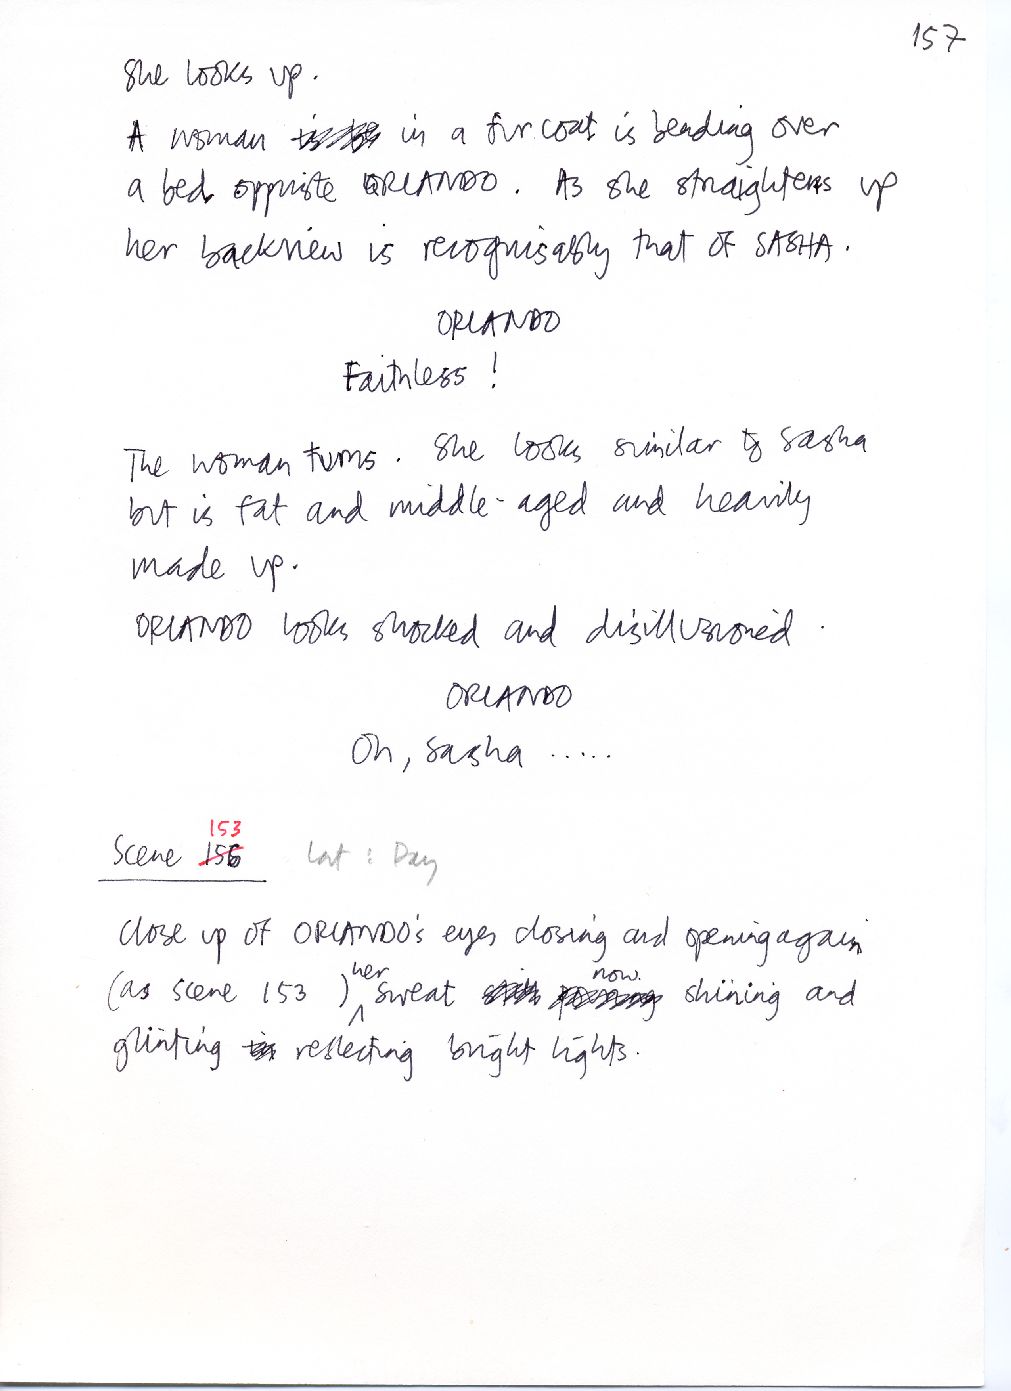 157
She looks up.
A woman in a fur coat is bending over
a bed opposite ORLANDO. As she straightens up
her backview is recognisably that of SASHA.
ORLANDO
Faithless!
The woman turns. She looks similar to Sasha
but is fat and middle-aged and heavily
made up.
ORLANDO looks shocked and disillusioned.
ORLANDO
Oh, Sasha .....
153
Scene 156 : Day
Close up of ORLANDO's eyes closing and opening again
(as scene 153) her sweat now shining and
glinting reflecting bright lights.